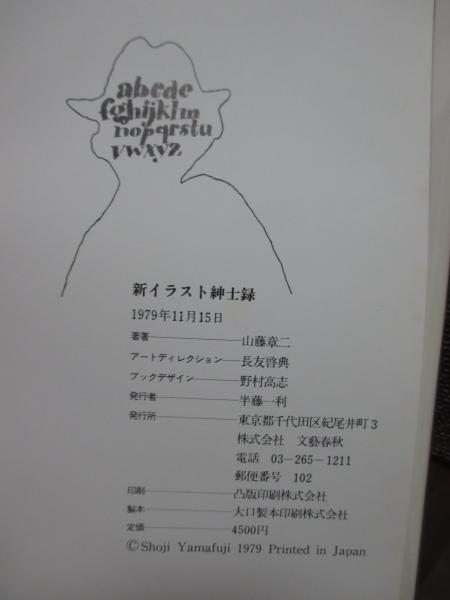 abcde
fghijklm
nopqrstu
vwxyz
新イラスト紳士録
1979年11月15日
著者――山藤章二
アートディレクション――長友啓典
ブックデザイン――野村高志
発行者――半藤一利
発行所――東京都千代田区紀尾井町3
株式会社 文藝春秋
電話 03-265-1211
郵便番号 102
印刷――凸版印刷株式会社
製本――大口製本印刷株式会社
定価――4500円
©Shoji Yamafuji 1979 Printed in Japan